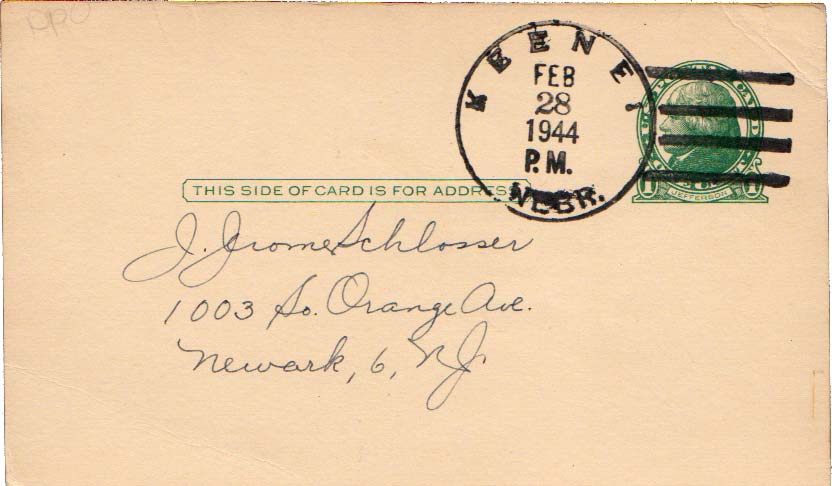 DPO
KEENE,
FEB
28
1944
P.M.
NEBR.
JEFFERSON
THIS SIDE OF CARD IS FOR ADDRESS
J. Jrome Schlosser
1003 So. Orange Ave.
Newark, 6, N.J.